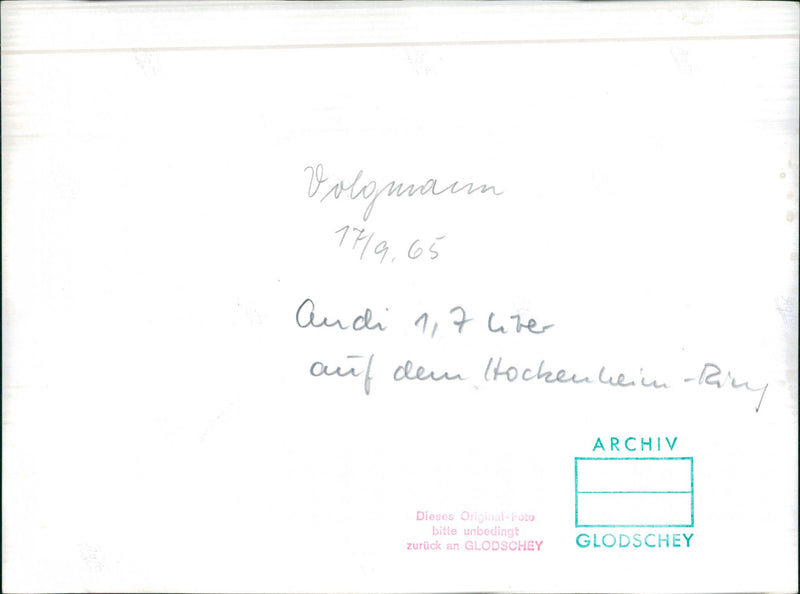 Volgmann
17/9. 65
Audi 1,7 Liter
auf dem Hockenheim-Ring
ARCHIV
GLODSCHEY
Dieses Original-Foto
bitte unbedingt
zurück an GLODSCHEY